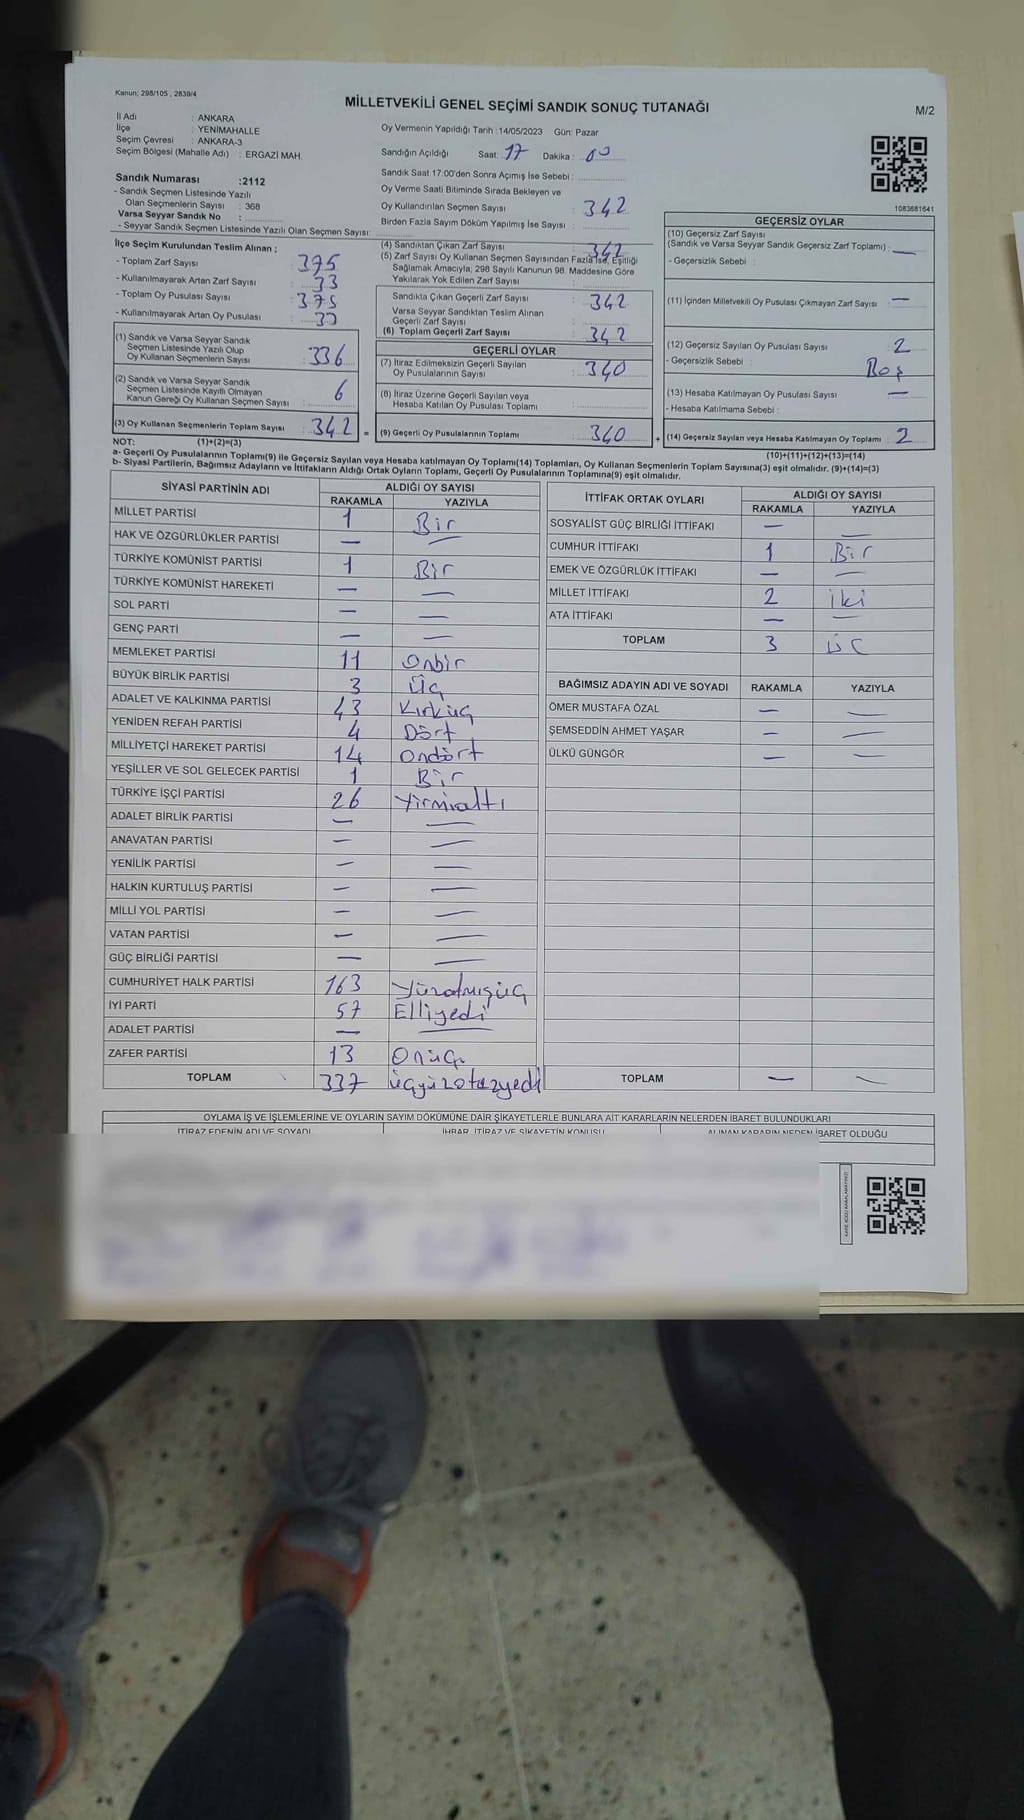 Kanun: 298/105 , 2839/4
MİLLETVEKİLİ GENEL SEÇİMİ SANDIK SONUÇ TUTANAĞI
M/2
İl Adı : ANKARA
İlçe : YENİMAHALLE
Seçim Çevresi : ANKARA-3
Seçim Bölgesi (Mahalle Adı) : ERGAZİ MAH.
Sandık Numarası :2112
- Sandık Seçmen Listesinde Yazılı
Olan Seçmenlerin Sayısı : 368
Varsa Seyyar Sandık No :
- Seyyar Sandık Seçmen Listesinde Yazılı Olan Seçmen Sayısı:
Oy Vermenin Yapıldığı Tarih :14/05/2023 Gün: Pazar
Sandığın Açıldığı Saat: 17 Dakika : 00
Sandık Saat 17:00'den Sonra Açımış İse Sebebi :
Oy Verme Saati Bitiminde Sırada Bekleyen ve
Oy Kullandırılan Seçmen Sayısı : 342
Birden Fazla Sayım Döküm Yapılmış İse Sayısı :
1083681641
İlçe Seçim Kurulundan Teslim Alınan ;
- Toplam Zarf Sayısı : 375
- Kullanılmayarak Artan Zarf Sayısı : 33
- Toplam Oy Pusulası Sayısı : 375
- Kullanılmayarak Artan Oy Pusulası : 33
(1) Sandık ve Varsa Seyyar Sandık
Seçmen Listesinde Yazılı Olup
Oy Kullanan Seçmenlerin Sayısı : 336
(2) Sandık ve Varsa Seyyar Sandık
Seçmen Listesinde Kayıtlı Olmayan
Kanun Gereği Oy Kullanan Seçmen Sayısı : 6
(3) Oy Kullanan Seçmenlerin Toplam Sayısı : 342 =
(4) Sandıktan Çıkan Zarf Sayısı : 342
(5) Zarf Sayısı Oy Kullanan Seçmen Sayısından Fazla İse, Eşitliği
Sağlamak Amacıyla; 298 Sayılı Kanunun 98. Maddesine Göre
Yakılarak Yok Edilen Zarf Sayısı :
Sandıkta Çıkan Geçerli Zarf Sayısı : 342
Varsa Seyyar Sandıktan Teslim Alınan
Geçerli Zarf Sayısı :
(6) Toplam Geçerli Zarf Sayısı : 342
GEÇERLİ OYLAR
(7) İtiraz Edilmeksizin Geçerli Sayılan
Oy Pusulalarının Sayısı : 340
(8) İtiraz Üzerine Geçerli Sayılan veya
Hesaba Katılan Oy Pusulası Toplamı :
(9) Geçerli Oy Pusulalarının Toplamı : 340 +
GEÇERSİZ OYLAR
(10) Geçersiz Zarf Sayısı
(Sandık ve Varsa Seyyar Sandık Geçersiz Zarf Toplamı) : —
- Geçersizlik Sebebi :
(11) İçinden Milletvekili Oy Pusulası Çıkmayan Zarf Sayısı : —
(12) Geçersiz Sayılan Oy Pusulası Sayısı : 2
- Geçersizlik Sebebi : Boş
(13) Hesaba Katılmayan Oy Pusulası Sayısı : —
- Hesaba Katılmama Sebebi :
(14) Geçersiz Sayılan veya Hesaba Katılmayan Oy Toplamı : 2
NOT: (1)+(2)=(3) (10)+(11)+(12)+(13)=(14)
a- Geçerli Oy Pusulalarının Toplamı(9) ile Geçersiz Sayılan veya Hesaba katılmayan Oy Toplamı(14) Toplamları, Oy Kullanan Seçmenlerin Toplam Sayısına(3) eşit olmalıdır. (9)+(14)=(3)
b- Siyasi Partilerin, Bağımsız Adayların ve İttifakların Aldığı Ortak Oyların Toplamı, Geçerli Oy Pusulalarının Toplamına(9) eşit olmalıdır.
SİYASİ PARTİNİN ADI ALDIĞI OY SAYISI
RAKAMLA YAZIYLA
MİLLET PARTİSİ 1 Bir
HAK VE ÖZGÜRLÜKLER PARTİSİ — —
TÜRKİYE KOMÜNİST PARTİSİ 1 Bir
TÜRKİYE KOMÜNİST HAREKETİ — —
SOL PARTİ — —
GENÇ PARTİ — —
MEMLEKET PARTİSİ 11 Onbir
BÜYÜK BİRLİK PARTİSİ 3 Üç
ADALET VE KALKINMA PARTİSİ 43 Kırküç
YENİDEN REFAH PARTİSİ 4 Dört
MİLLİYETÇİ HAREKET PARTİSİ 14 Ondört
YEŞİLLER VE SOL GELECEK PARTİSİ 1 Bir
TÜRKİYE İŞÇİ PARTİSİ 26 Yirmialtı
ADALET BİRLİK PARTİSİ — —
ANAVATAN PARTİSİ — —
YENİLİK PARTİSİ — —
HALKIN KURTULUŞ PARTİSİ — —
MİLLİ YOL PARTİSİ — —
VATAN PARTİSİ — —
GÜÇ BİRLİĞİ PARTİSİ — —
CUMHURİYET HALK PARTİSİ 163 Yüzatmışüç
İYİ PARTİ 57 Elliyedi
ADALET PARTİSİ — —
ZAFER PARTİSİ 13 Onüç
TOPLAM 337 üçyüzotuzyedi
İTTİFAK ORTAK OYLARI ALDIĞI OY SAYISI
RAKAMLA YAZIYLA
SOSYALİST GÜÇ BİRLİĞİ İTTİFAKI — —
CUMHUR İTTİFAKI 1 Bir
EMEK VE ÖZGÜRLÜK İTTİFAKI — —
MİLLET İTTİFAKI 2 iki
ATA İTTİFAKI — —
TOPLAM 3 ÜÇ
BAĞIMSIZ ADAYIN ADI VE SOYADI RAKAMLA YAZIYLA
ÖMER MUSTAFA ÖZAL — —
ŞEMSEDDİN AHMET YAŞAR — —
ÜLKÜ GÜNGÖR — —
TOPLAM — —
OYLAMA İŞ VE İŞLEMLERİNE VE OYLARIN SAYIM DÖKÜMÜNE DAİR ŞİKAYETLERLE BUNLARA AİT KARARLARIN NELERDEN İBARET BULUNDUKLARI
İTİRAZ EDENİN ADI VE SOYADI İHBAR, İTİRAZ VE ŞİKAYETİN KONUSU ALINAN KARARIN NEDEN İBARET OLDUĞU